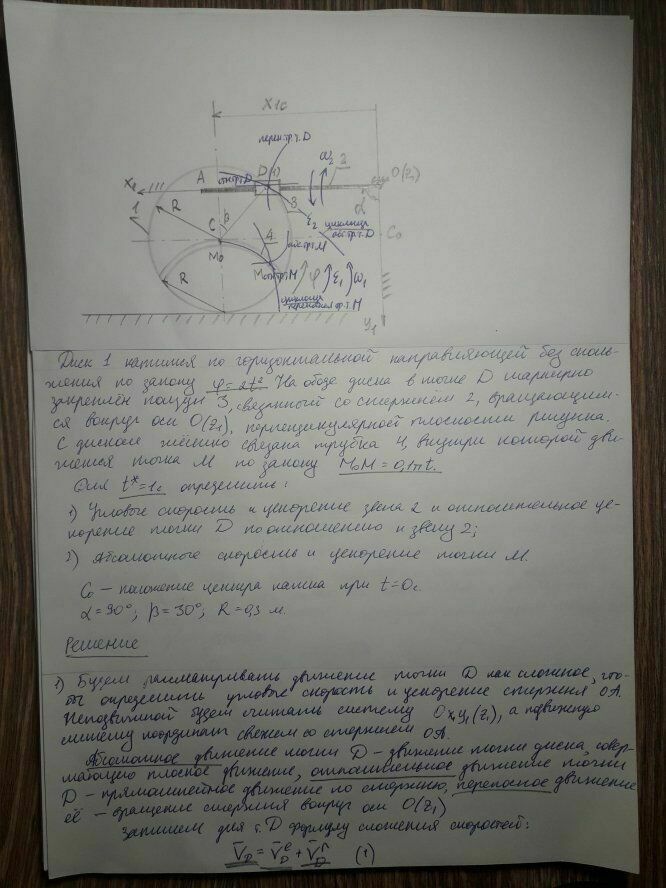 X₁c
перен.тр.т.D
A
отн.тр.D
D(t)
ω₂
2
O(z₁)
x₁
1
R
C
β
3
ε₂
α
циклоида
абс.тр.т.D
C₀
M₀
4
абс.тр.M
R
M
отн.тр.M
φ
ε₁
ω₁
циклоида
переносная тр.т.M
y₁
Диск 1 катится по горизонтальной направляющей без сколь-
жения по закону φ=2t². На ободе диска в точке D шарнирно
закреплён ползун 3, связанный со стержнем 2, вращающим-
ся вокруг оси O(z₁), перпендикулярной плоскости рисунка.
С диском жёстко связана трубка 4, внутри которой дви-
жется точка M по закону M₀M=0,1πt.
Для t*=1c определить:
1) Угловые скорость и ускорение звена 2 и относительное ус-
корение точки D по отношению к звену 2;
2) Абсолютные скорость и ускорение точки M.
C₀ – положение центра катка при t=0c
α=90°; β=30°; R=0,3 м.
Решение
1) Будем рассматривать движение точки D как сложное, что-
бы определить угловые скорость и ускорение стержня OA.
Неподвижной будем считать систему Ox₁y₁(z₁), а подвижную
систему координат свяжем со стержнем OA.
Абсолютное движение точки D – движение точки диска, совер-
шающего плоское движение, относительное движение точки
D – прямолинейное движение по стержню, переносное движение
её – вращение стержня вокруг оси O(z₁)
Запишем для т.D формулу сложения скоростей:
V̄_D = V̄_D^e + V̄_D^r (1)